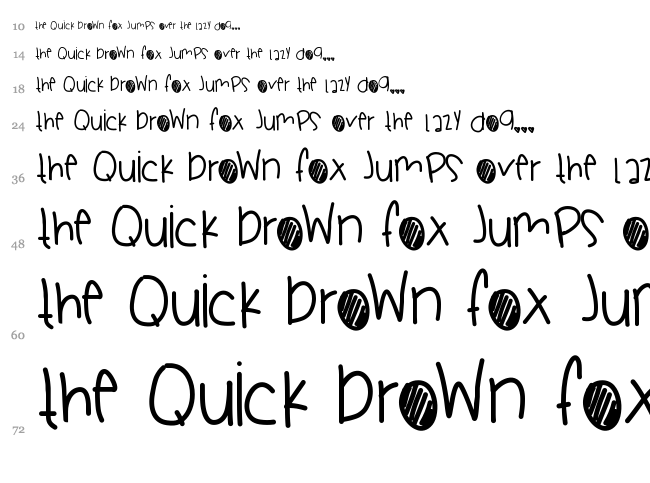 10 the Quick brown fox Jumps over the lazy dog...
14 the Quick brown fox Jumps over the lazy dog...
18 the Quick brown fox Jumps over the lazy dog...
24 the Quick brown fox Jumps over the lazy dog...
36 the Quick brown fox Jumps over the laz
48 the Quick brown fox Jumps o
60 the Quick brown fox Jum
72 the Quick brown fox